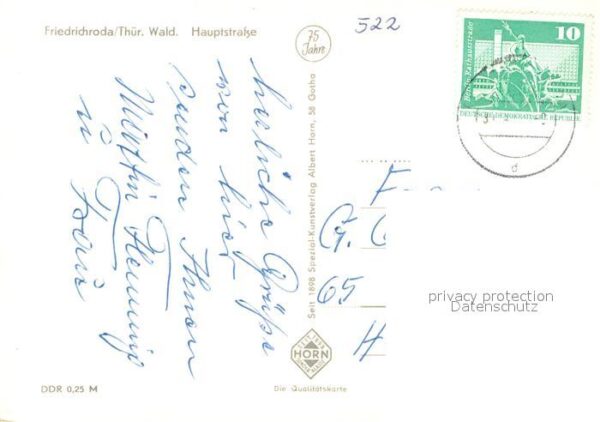 Friedrichroda/Thür. Wald. Hauptstraße
75
Jahre
522
10
Berlin, Rathausstraße
DEUTSCHE DEMOKRATISCHE REPUBLIK
herzliche Grüße
von hier
senden Ihnen
Henning
u.
Seit 1898 Spezial-Kunstverlag Albert Horn, 58 Gotha
HORN
Die Qualitätskarte
DDR 0,25 M
G. C
65
H
privacy protection
Datenschutz